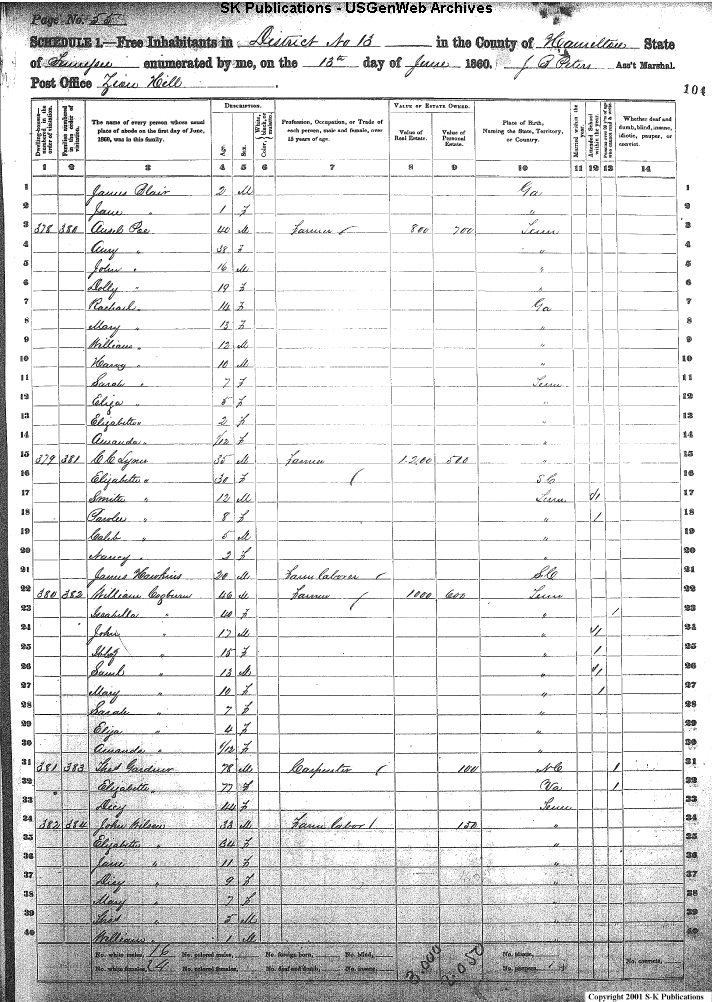 SK Publications - USGenWeb Archives
Page No. 55
SCHEDULE 1.—Free Inhabitants in District No 13 in the County of Hamilton State
of Tennessee enumerated by me, on the 13th day of June 1860. J B Peters Ass't Marshal.
Post Office Zion Hill
104
DESCRIPTION. VALUE OF ESTATE OWNED.
Dwelling-houses—numbered in the order of visitation. Families numbered in the order of visitation. The name of every person whose usual place of abode on the first day of June, 1860, was in this family. Age. Sex. Color, White, black, or mulatto. Profession, Occupation, or Trade of each person, male and female, over 15 years of age. Value of Real Estate. Value of Personal Estate. Place of Birth, Naming the State, Territory, or Country. Married within the year. Attended School within the year. Persons over 20 y'rs of age who cannot read & write. Whether deaf and dumb, blind, insane, idiotic, pauper, or convict.
1 2 3 4 5 6 7 8 9 10 11 12 13 14
1 James Blair 2 M Ga 1
2 Jane " 1 F " 2
3 378 380 40 M Farmer 800 700 Tenn 3
4 Amy " 38 F " 4
5 John " 16 M " 5
6 Dolly " 19 F " 6
7 Rachael " 14 F Ga 7
8 Mary " 13 F " 8
9 William " 12 M " 9
10 " 10 M " 10
11 Sarah " 7 F Tenn 11
12 Eliza " 5 F " 12
13 Elizabeth " 2 F " 13
14 Amanda " 1/12 F " 14
15 379 381 C C 35 M Farmer 1200 500 " 15
16 Elizabeth " 30 F S C 16
17 Smith " 12 M Tenn 1 17
18 " 8 F " 1 18
19 Caleb " 5 M " 19
20 Nancy " 2 F " 20
21 James Hawkins 20 M Farm Laborer S.C 21
22 380 382 William Cogburn 46 M Farmer 1000 600 Tenn 22
23 Isabella " 40 F " 1 23
24 John " 17 M " 1 24
25 " 15 F " 1 25
26 Saml " 13 M " 1 26
27 Mary " 10 F " 1 27
28 Sarah " 7 F " 28
29 Eliza " 4 F " 29
30 Amanda " 9/12 F " 30
31 381 383 Thos Gardner 78 M Carpenter 100 N.C 1 31
32 Elizabeth " 77 F Va 1 32
33 Dicy " 44 F Tenn 33
34 382 384 John Wilson 33 M Farm labor 150 " 34
35 Elizabeth " 34 F " 35
36 Jane " 11 F " 36
37 Dicy " 9 F " 37
38 Mary " 7 F " 38
39 Thos " 5 M " 39
40 William " 1 M " 40
No. white males, 16 No. colored males, No. foreign born, No. blind, 3,000 2,050 No. idiotic, No. convicts,
No. white females, 24 No. colored females, No. deaf and dumb, No. insane, No. paupers,
Copyright 2001 S-K Publications